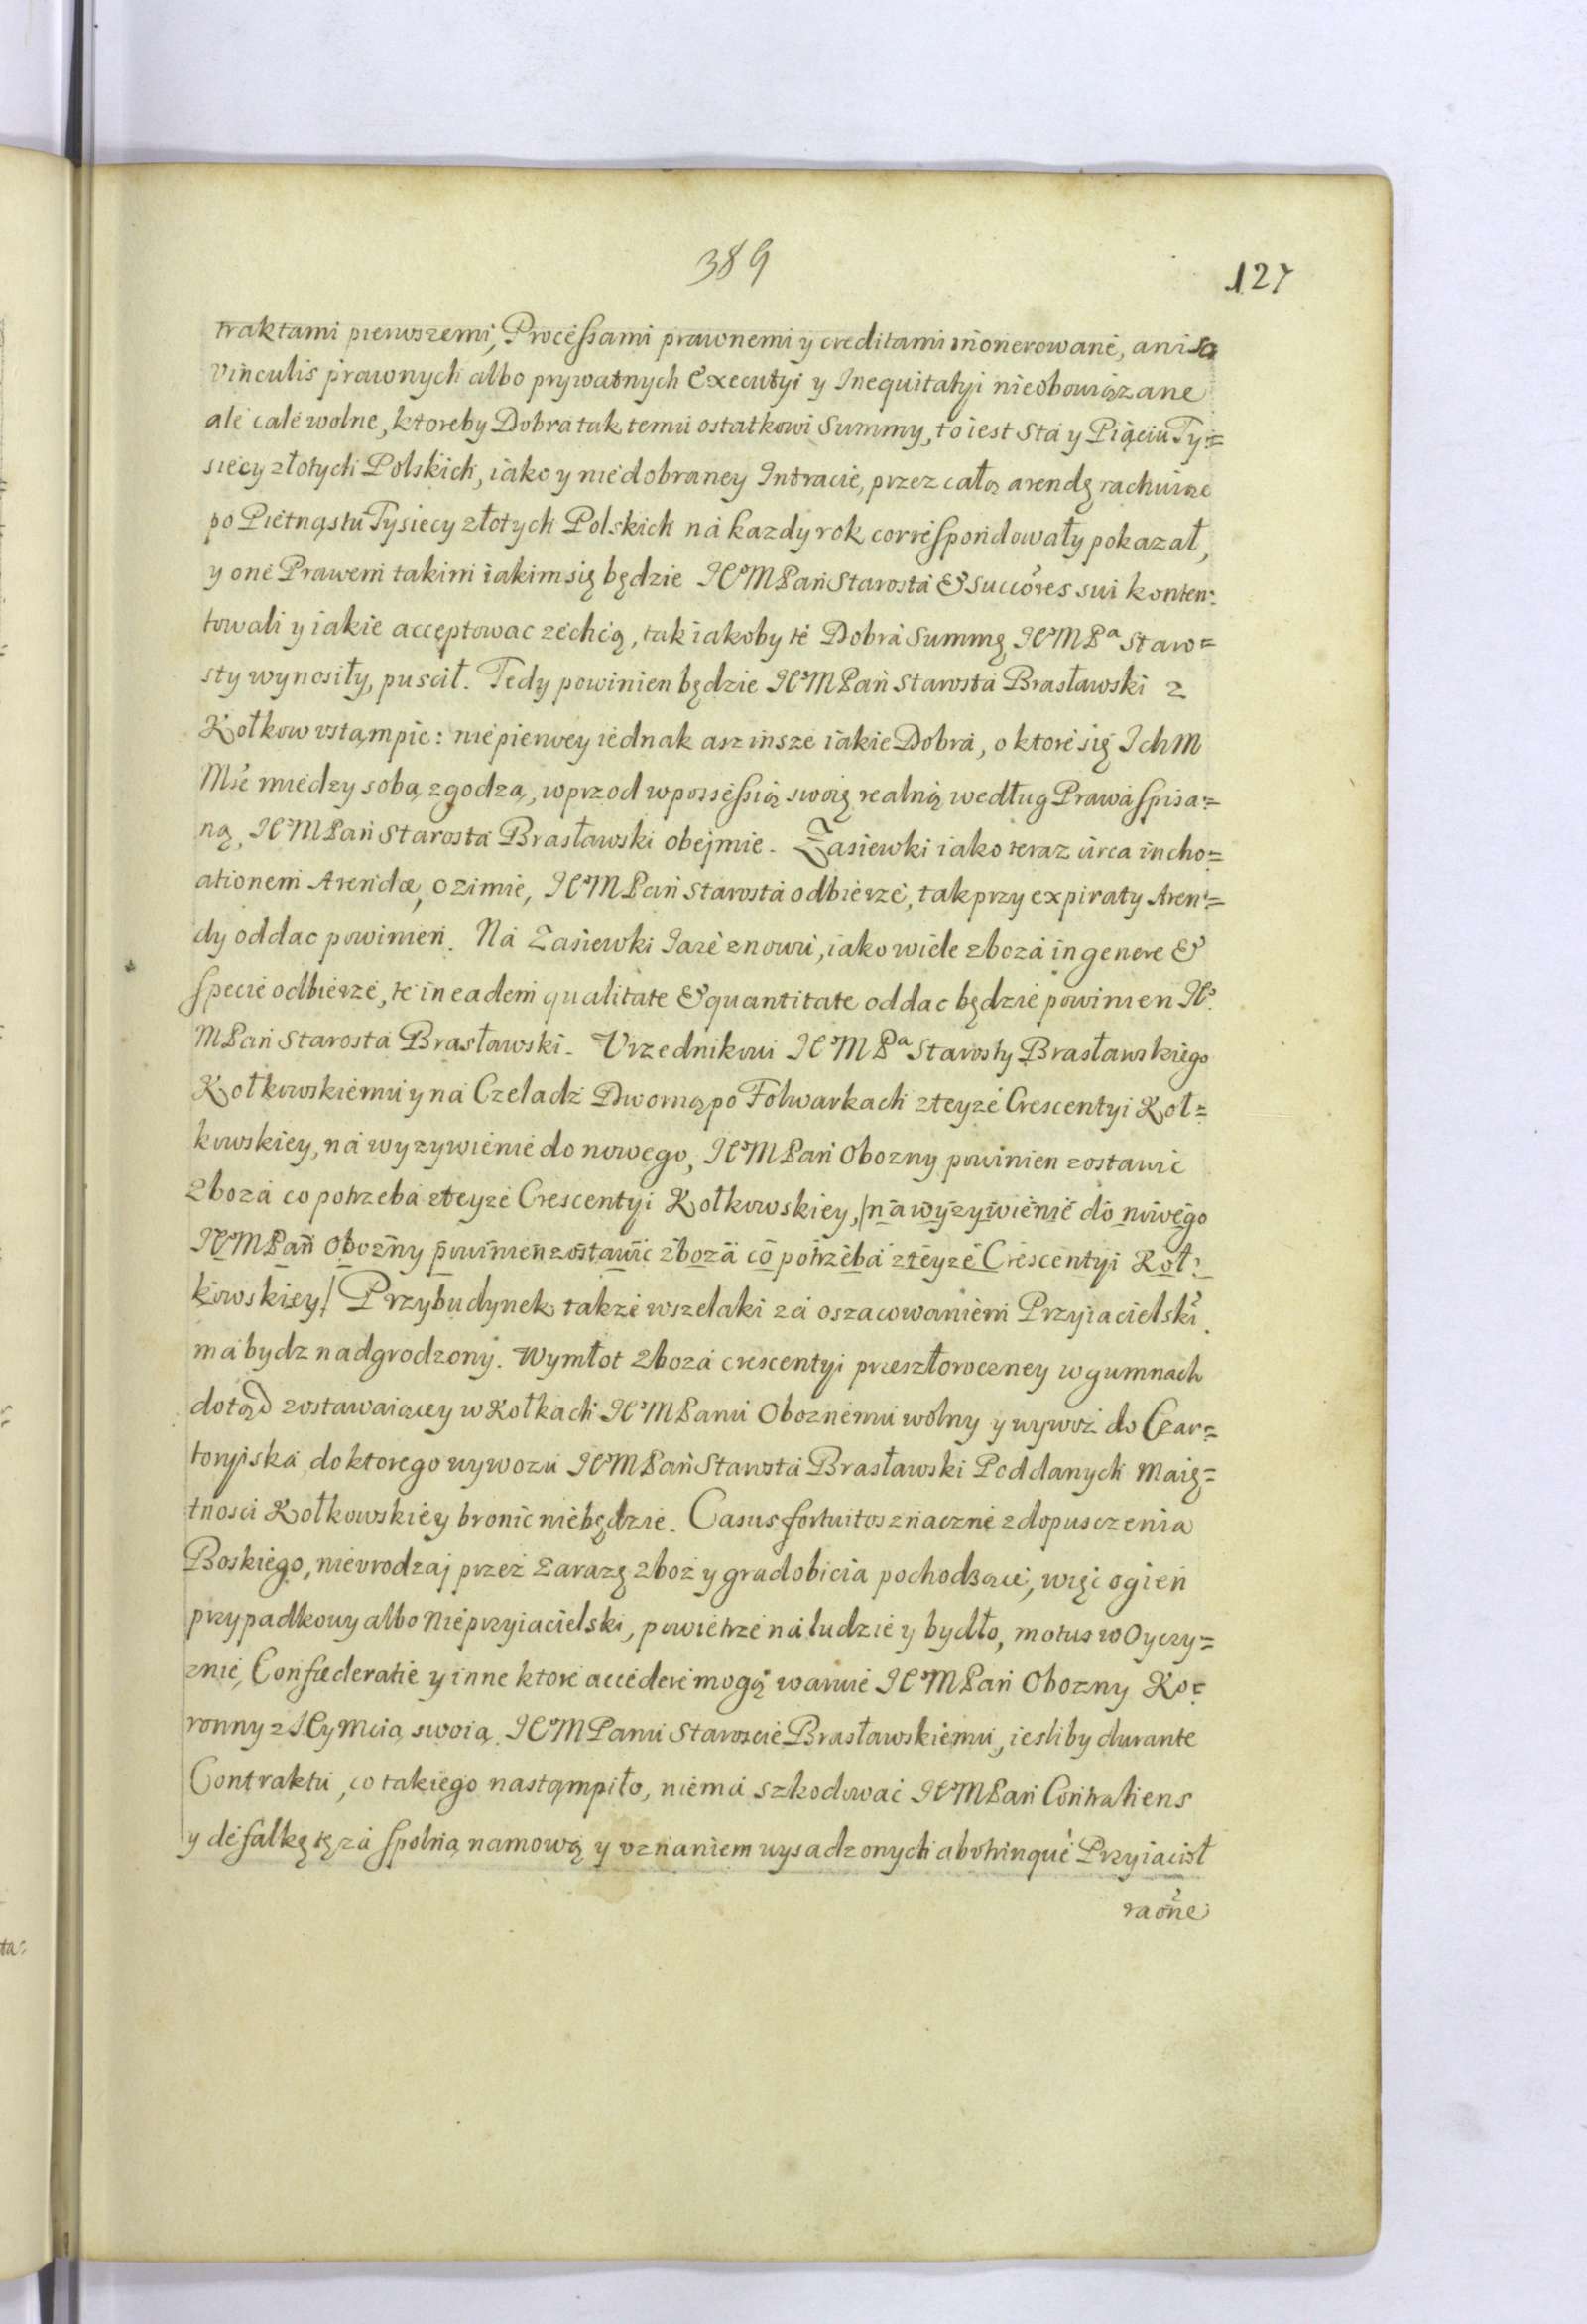 389
127
traktami pierwszemi, Processami prawnemi y creditami inonerowane, ani są
vinculis prawnych albo prywatnych Executyi y Inequitatyi nieobowiązane
ale cale wolne, ktoreby Dobra tak temu ostatkowi Summy, to iest Sta y Piąciu Ty=
siecy złotych Polskich, iako y niedobraney Intracie, przez całą arendę rachuiąc
po Pietnąstu Tysiecy złotych Polskich na kazdy rok correspondowały pokazał,
y one Prawem takim iakim się będzie JCMPan Starosta & Succores sui konten=
towali y iakie acceptowac zechcą, tak iakoby te Dobra Summę JCMPa Staro=
sty wynosiły, puscił. Tedy powinien będzie JCMPan Starosta Brasławski z
Kołkow vstąmpic: niepierwey iednak asz insze iakie Dobra, o ktore się Ich M
Mśc miedzy sobą zgodzą, wprzod wpossessią swoię realną według Prawa spisa=
ną, JCMPan Starosta Brasławski obejmie. Zasiewki iako teraz circa incho=
ationem Arendæ, ozimie, JCMPan Starosta odbierze, tak przy expiraty Aren=
dy oddac powinien. Na Zasiewki Iare znowu, iako wiele zboza in genere &
specie odbierze, te in eadem qualitate & quantitate oddac będzie powinien JC
MPan Starosta Brasławski. Vrzednikowi JCMPa Starosty Brasławskiego
Kołkowskiemu y na Czeladz Dworną po Folwarkach zteyze Crescentyi Koł=
kowskiey, na wyzywienie do nowego, JCMPan Obozny powinien zostawic
zboza co potrzeba zteyze Crescentyi Kołkowskiey, /na wyzywienie do nowego
JCMPan Obozny powinien zostawic zboza co potrzeba zteyze Crescentyi Koł=
kowskiey/ Przybudynek takze wszelaki za oszacowaniem Przyiacielski
ma bydz nadgrodzony. Wymłot Zboza crescentyi przeszłoroczney w gumnach
dotąd zostawaiącey w Kołkach JCMPanu Oboznemu wolny y wywoz do Czar=
toryiska, do ktorego wywozu JCMPan Starosta Brasławski Poddanych Maię=
tnosci Kołkowskiey bronic niebędzie. Casus fortuitos znaczne z dopusczenia
Boskiego, nievrodzaj przez Zarazę zboz y gradobicia pochodzące, więc ogien
przypadkowy albo Nieprzyiacielski, powietrze na ludzie y bydło, motus w Oyczy=
znie, Confœderatie y inne ktore accedere mogą warnie JCMPan Obozny Ko=
ronny z JCymcią swoią JCMPanu Staroscie Brasławskiemu, iesliby durante
Contraktu, co takiego nastąmpiło, niema szkodowac JCMPan Contrahens
y defalkę tę za spolną namową y vznaniem wysadzonych abotrinque Przyiacioł
raõne